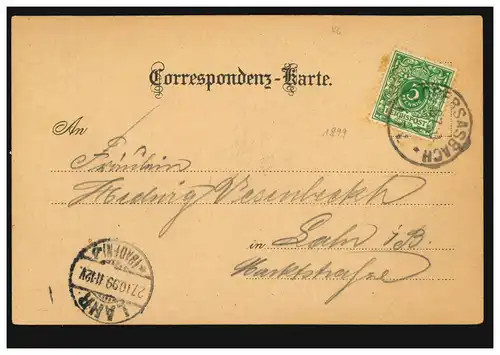 VG
Correspondenz-Karte.
5
PFENNIG
REICHSPOST
SASBACH
1899
An
Fräulein
Hedwig
in Lahr i/B.
Marktstraße
LAHR
(BADEN)
27.10.99.11-12V.